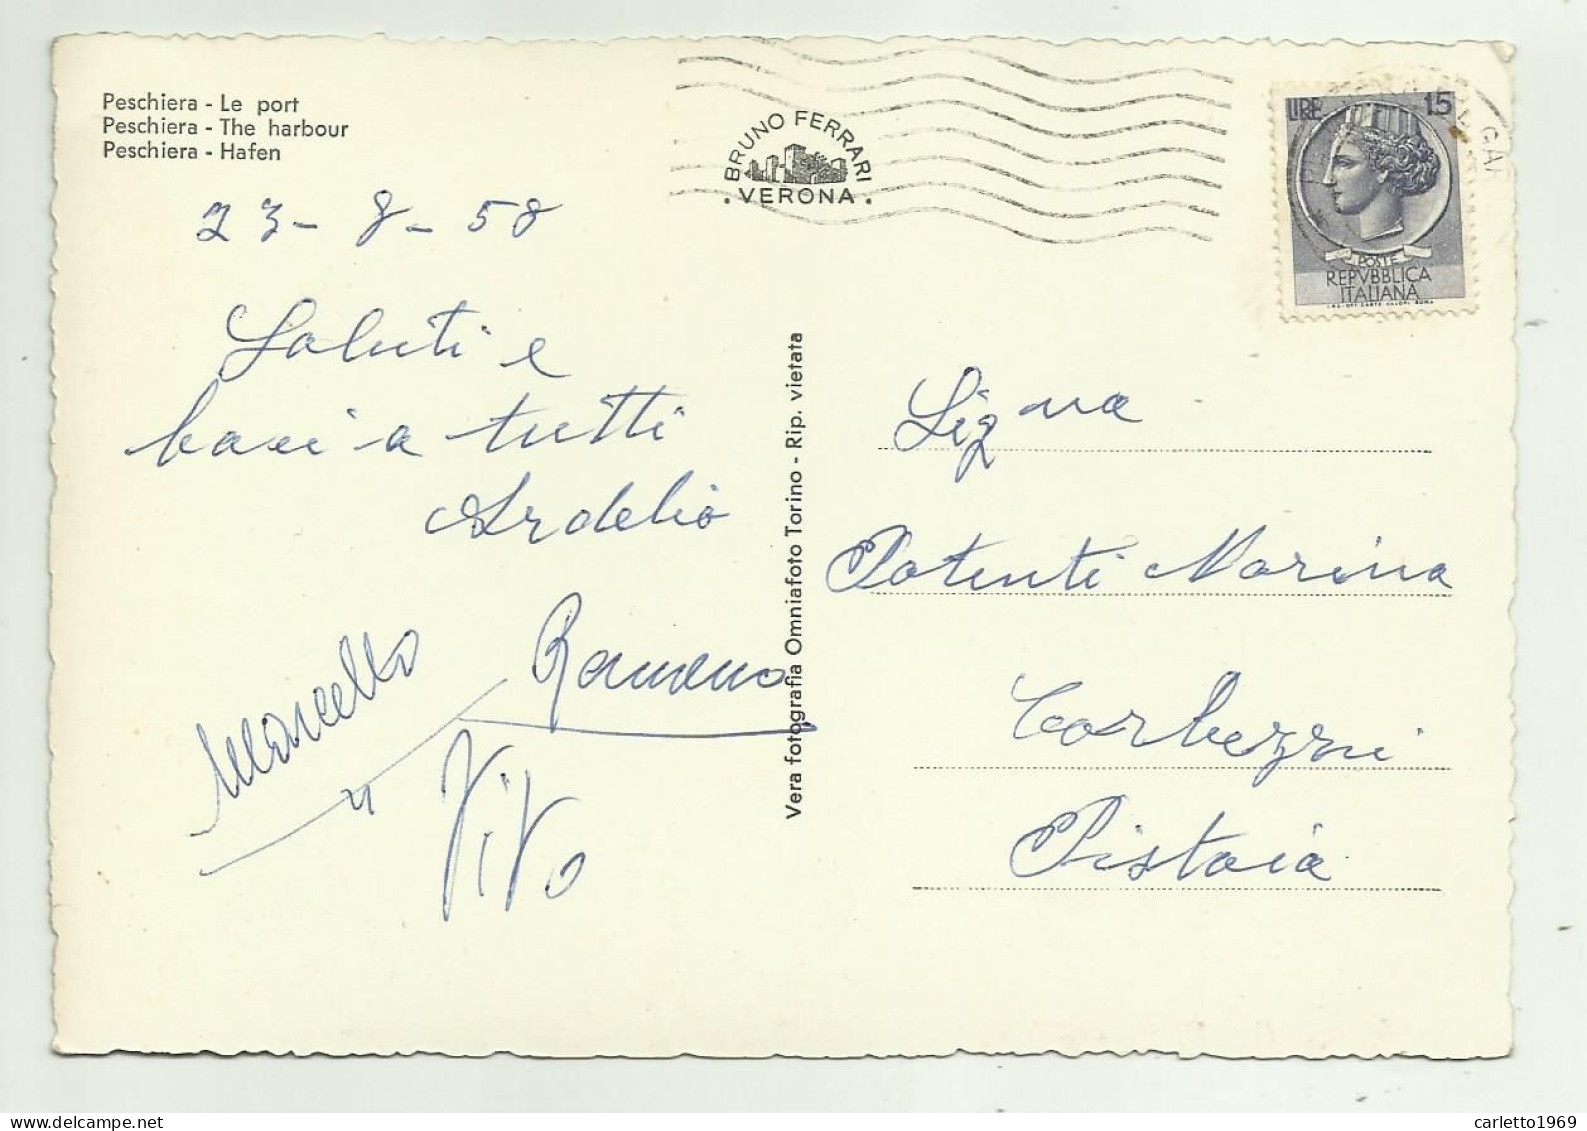 Peschiera - Le port
Peschiera - The harbour
Peschiera - Hafen
BRUNO FERRARI
. VERONA .
LIRE 15
POSTE
REPVBBLICA
ITALIANA
23-8-58
Saluti e
baci a tutti
Ardelio
Romano
Marcello
Vivo
Vera fotografia Omniafoto Torino - Rip. vietata
Sig na
Potenti Marina
Corbezzi
Pistoia
carletto1969